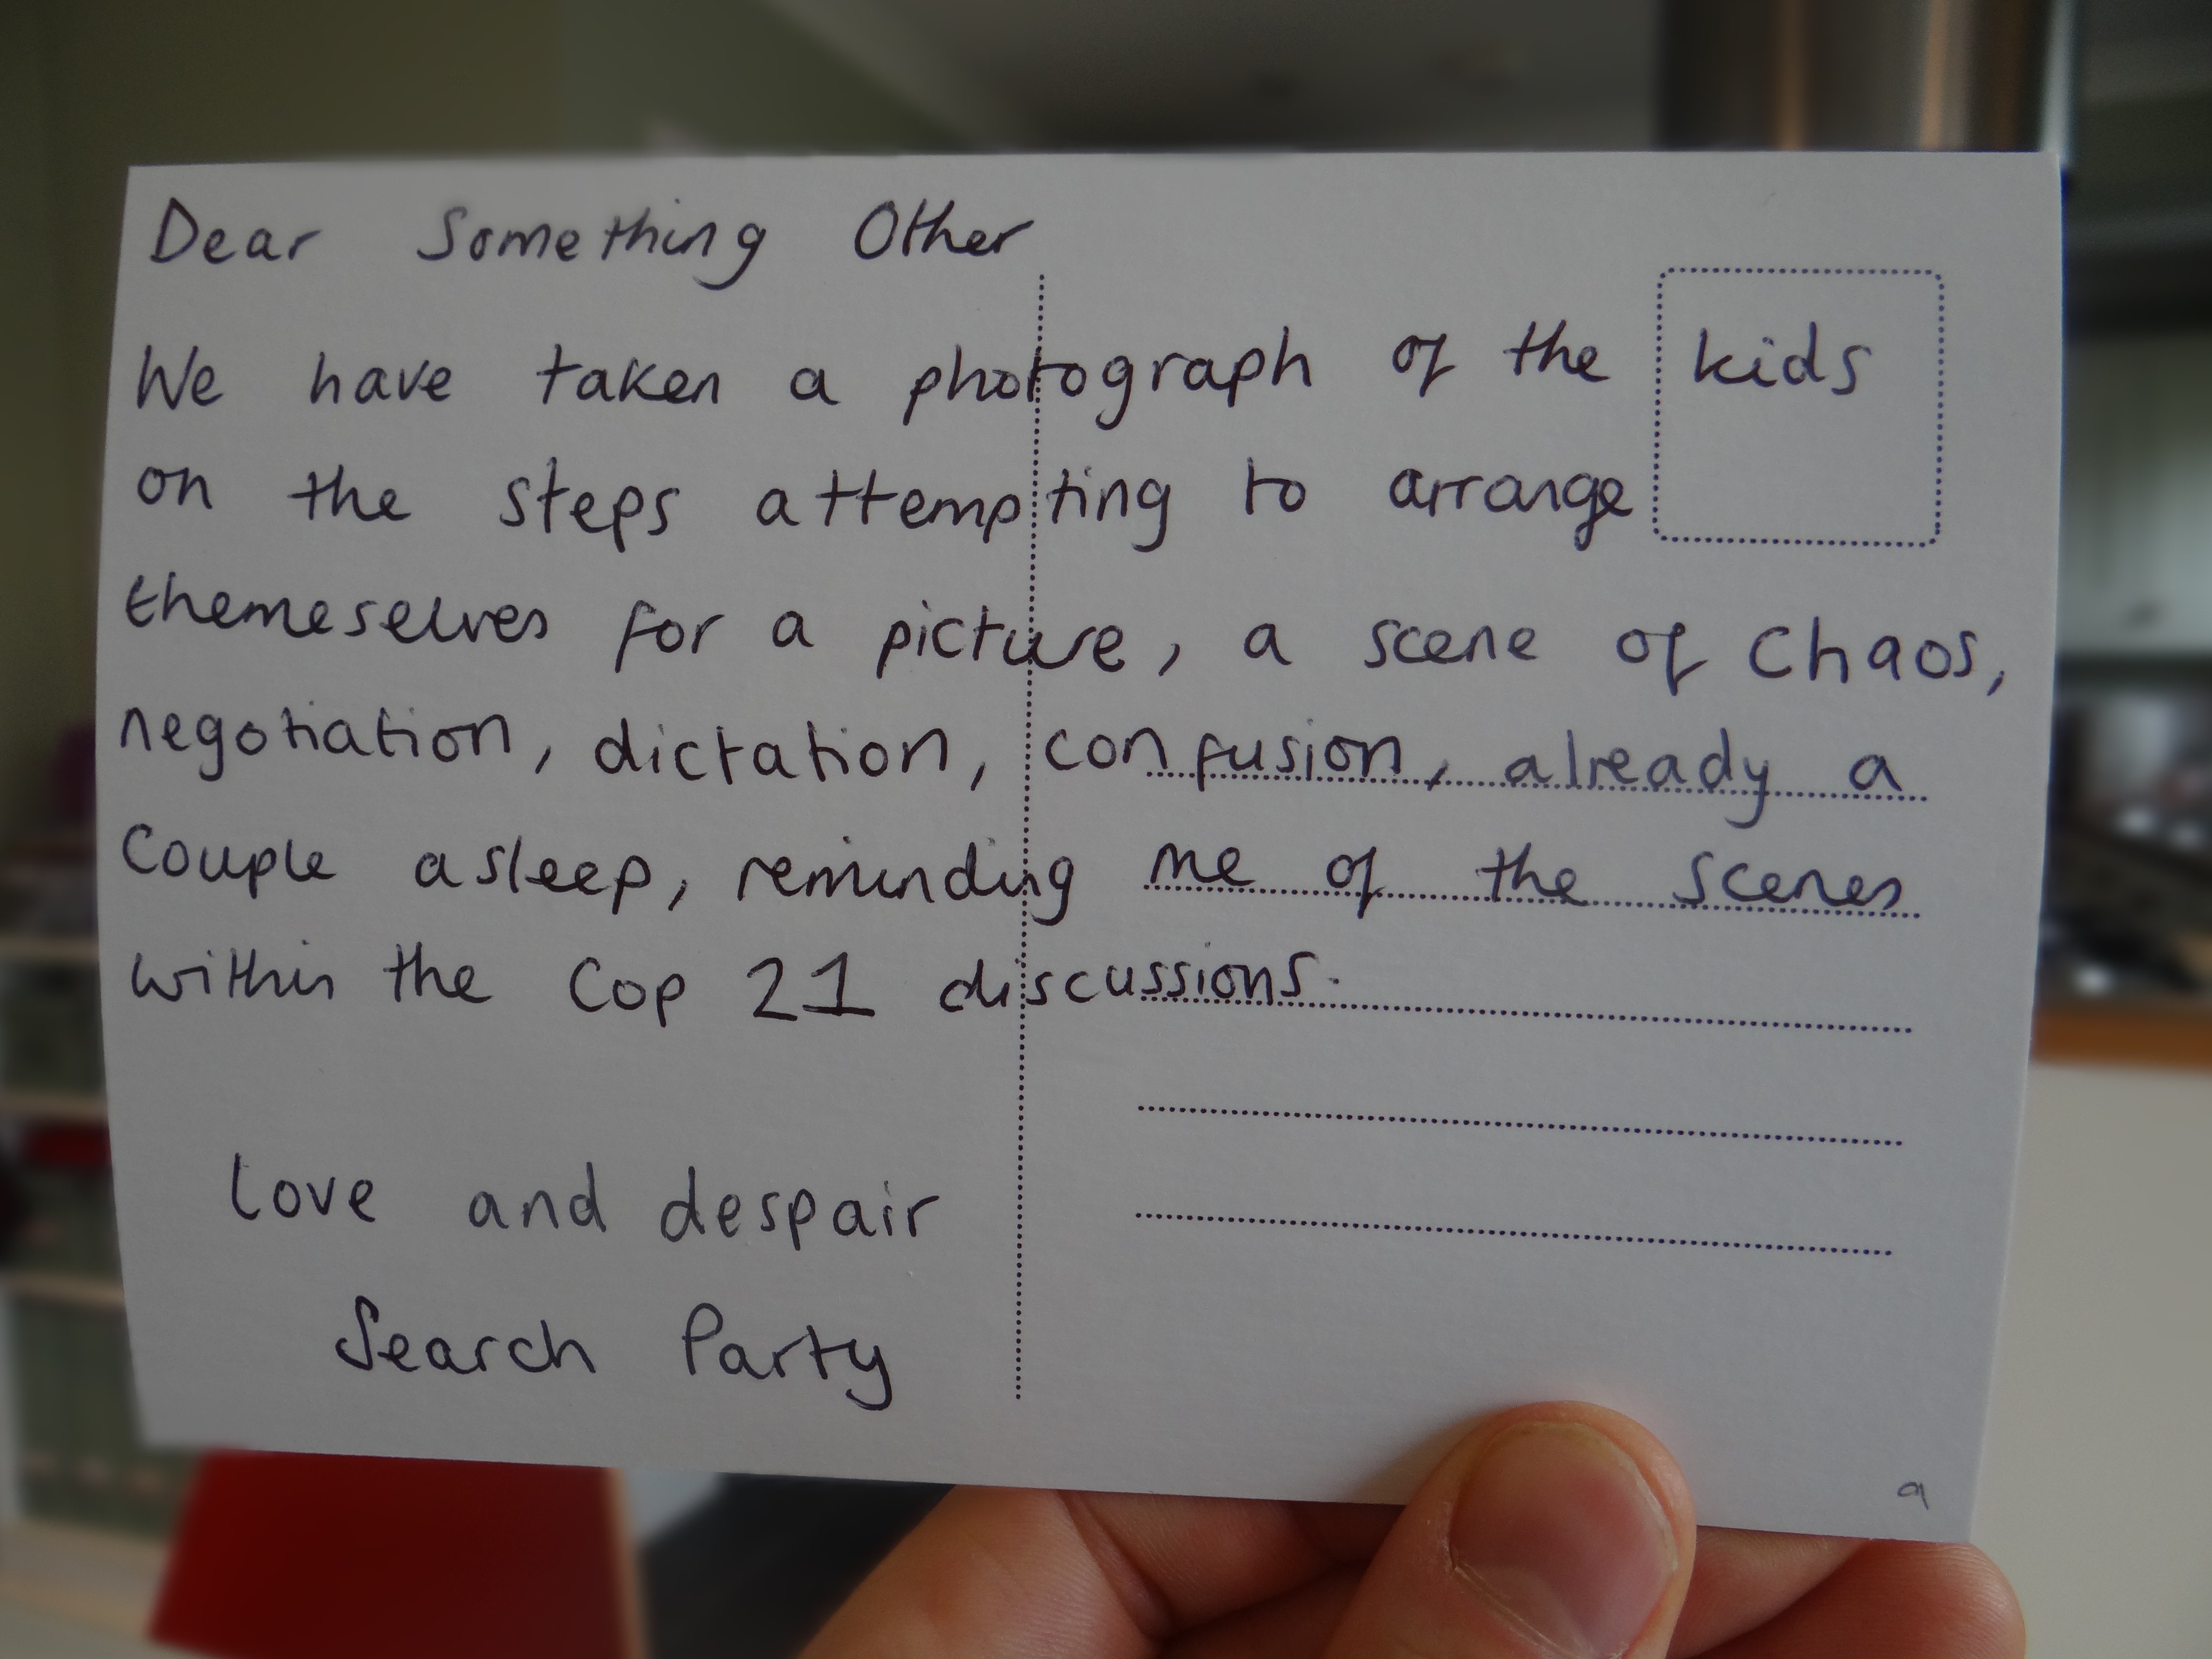 Dear Something Other
We have taken a photograph of the kids
on the steps attempting to arrange
themeselves for a picture, a scene of Chaos,
negotiation, dictation, confusion, already a
Couple asleep, reminding me of the scenes
within the Cop 21 discussions.
love and despair
Search Party
9